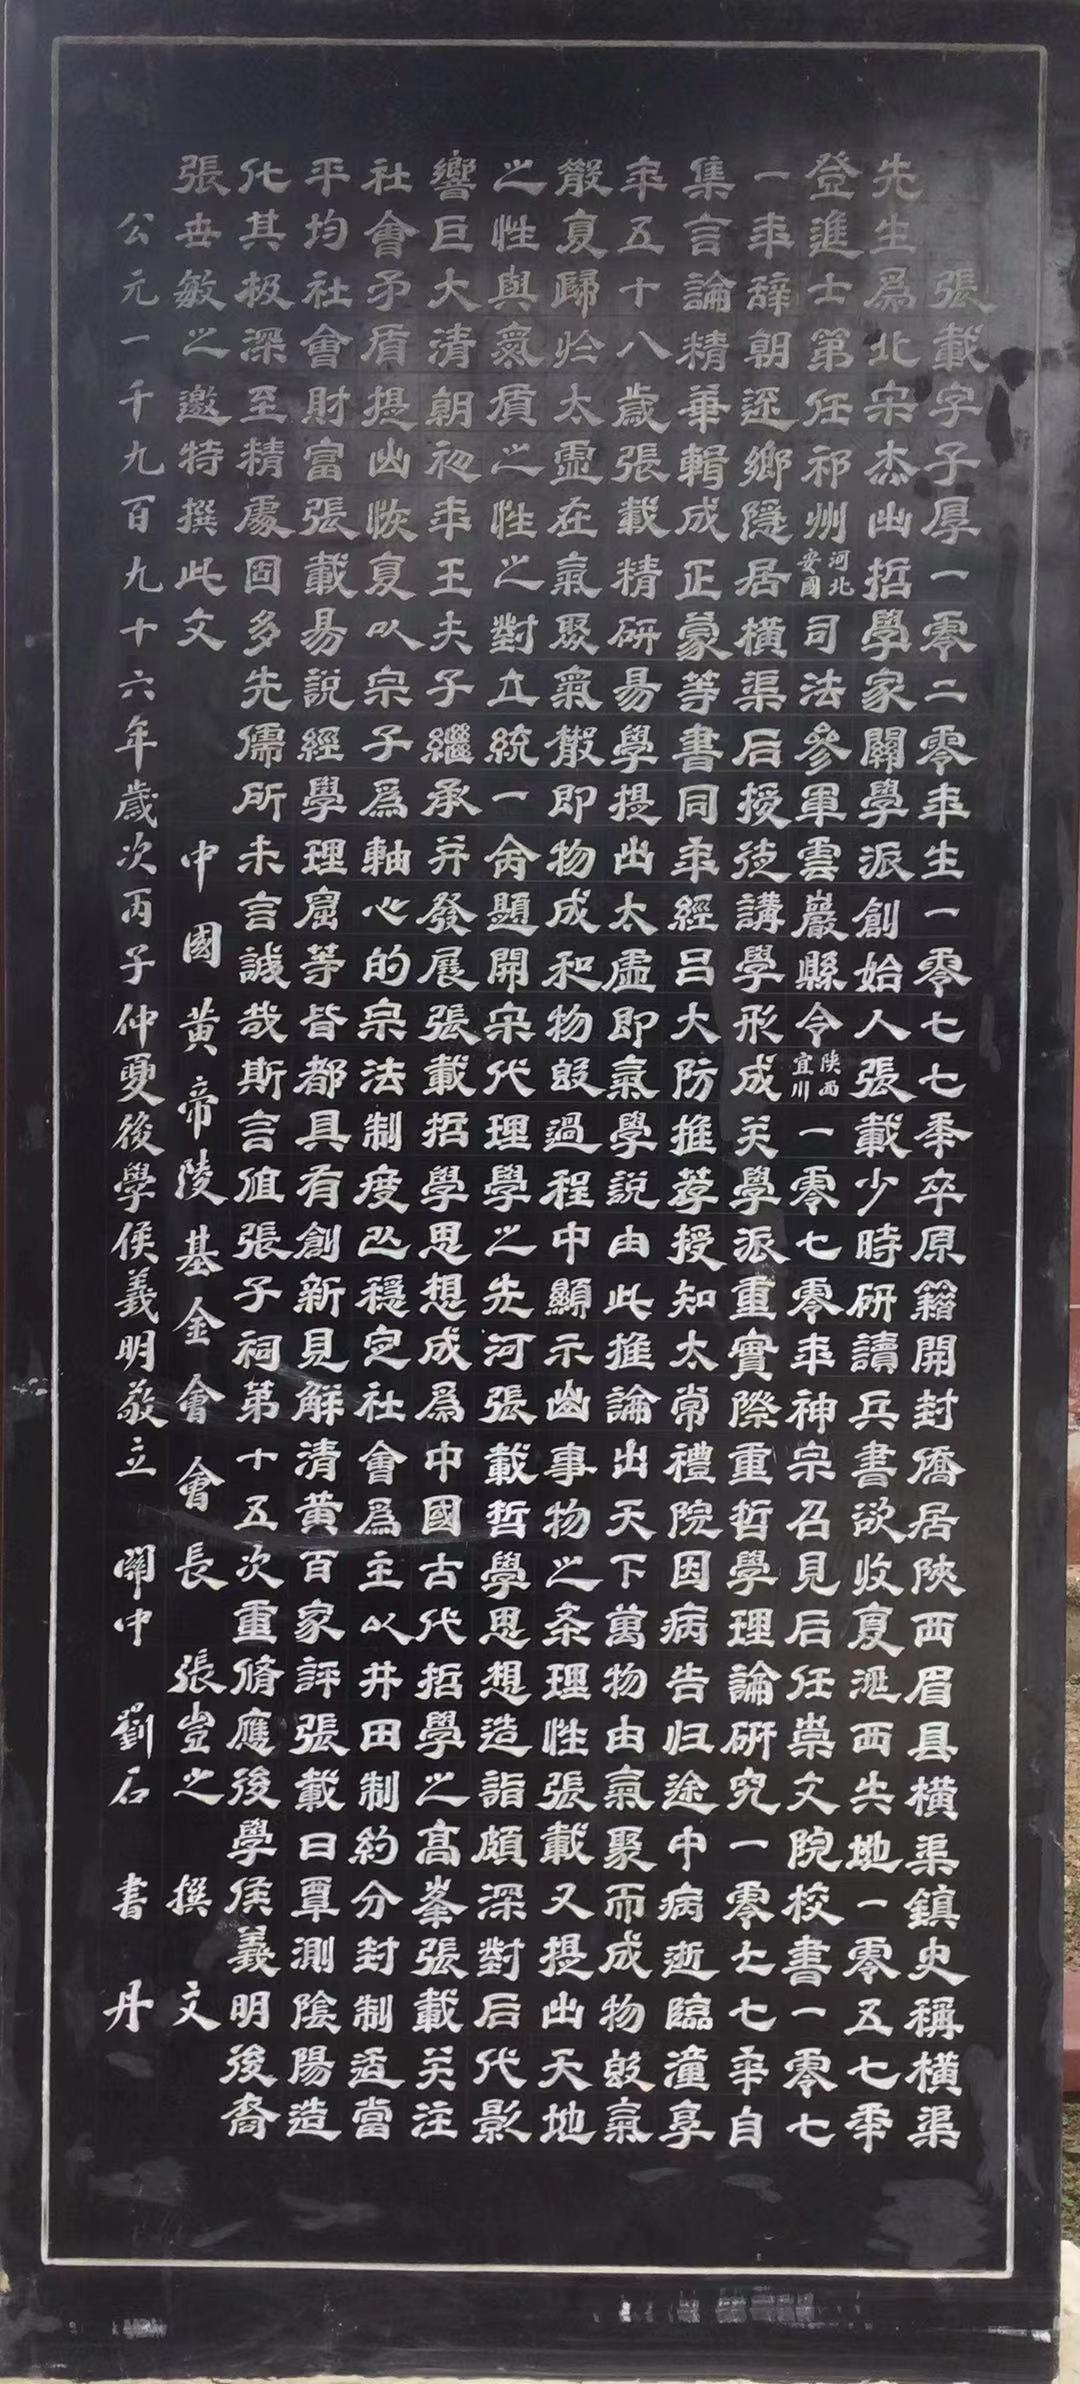 張載字子厚一零二零年生一零七七年卒原籍開封僑居陝西眉县橫渠鎮史稱橫渠
先生爲北宋杰出哲學家關學派創始人張載少時研讀兵書欲收复洮西失地一零五七年
登進士第任祁州河北安國司法參軍雲巖縣令陝西宜川一零七零年神宗召見后任崇文院校書一零七
一年辭朝还鄉隱居橫渠后授徒講學形成关學派重實際重哲學理論研究一零七七年自
集言論精華輯成正蒙等書同年經呂大防推荐授知太常禮院因病告归途中病逝臨潼享
年五十八歲張載精研易學提出太虛即氣學說由此推論出天下萬物由氣聚而成物毀氣
散复歸於太虛在氣聚氣散即物成和物毀過程中顯示出事物之条理性張載又提出天地
之性與氣質之性之對立統一命題開宋代理學之先河張載哲學思想造詣頗深對后代影
響巨大清朝初年王夫子繼承并發展張載哲學思想成爲中國古代哲學之高峯張載关注
社會矛盾提出恢复以宗子爲軸心的宗法制度以穩定社會爲主以井田制約分封制适當
平均社會財富張載易說經學理窟等皆都具有創新見解清黄百家評張載曰覃測陰陽造
化其极深至精處固多先儒所未言誠哉斯言值張子祠第十五次重脩應後學侯義明後裔
張世敏之邀特撰此文
中國黄帝陵基金會會長 張豈之 撰文
公元一千九百九十六年歲次丙子仲夏後學侯義明敬立 關中 劉石 書丹